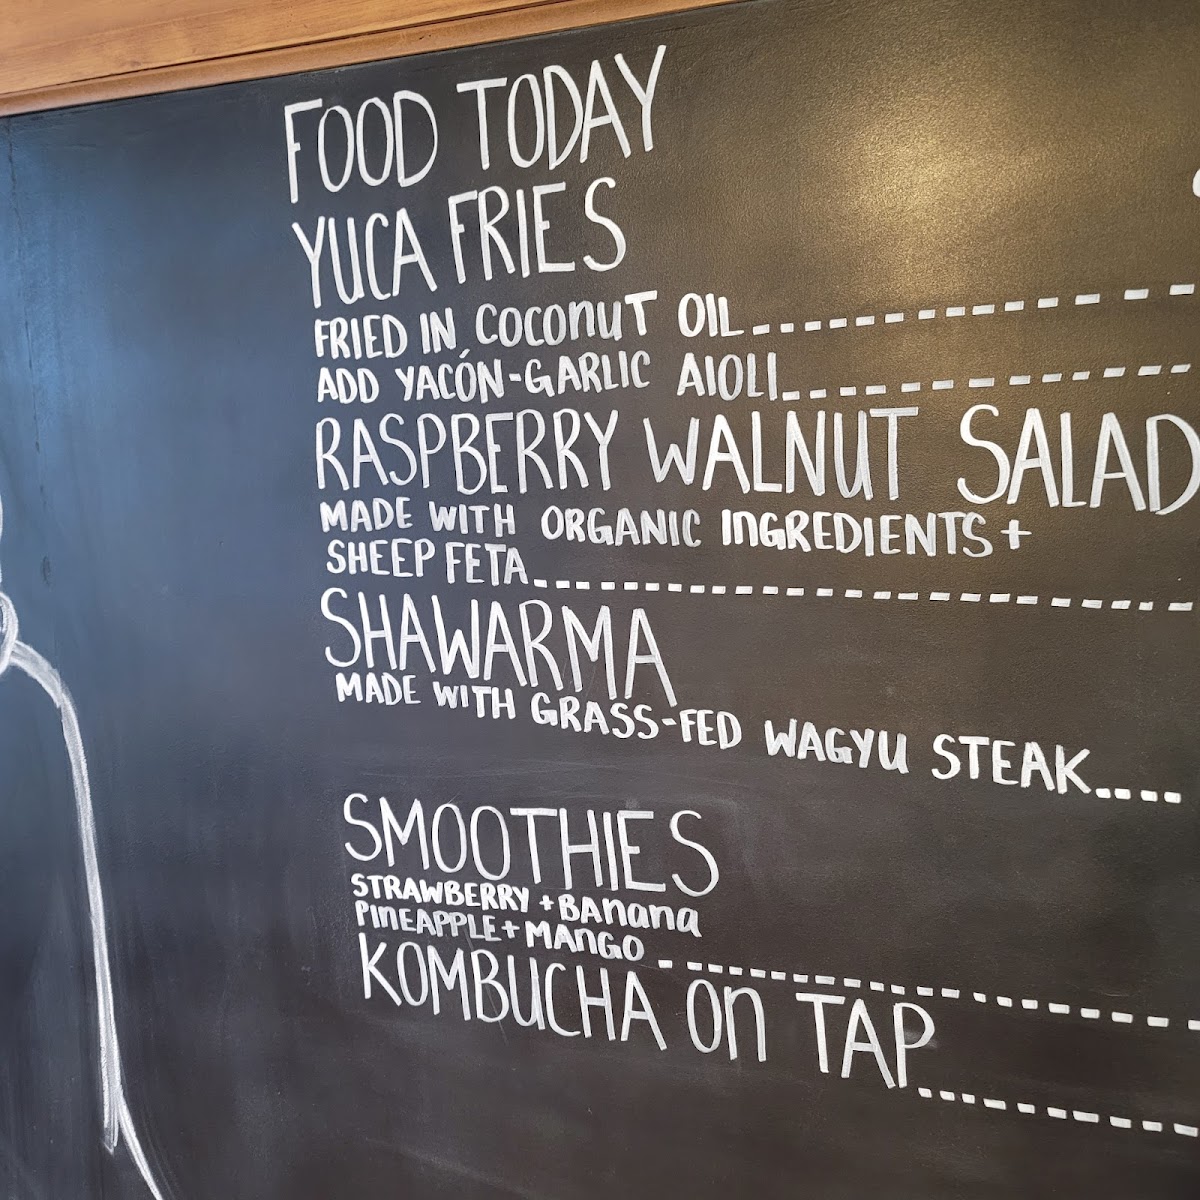 FOOD TODAY
YUCA FRIES
FRIED IN COCONUT OIL
ADD YACÓN-GARLIC AIOLI
RASPBERRY WALNUT SALAD
MADE WITH ORGANIC INGREDIENTS +
SHEEP FETA
SHAWARMA
MADE WITH GRASS-FED WAGYU STEAK
SMOOTHIES
STRAWBERRY + BANANA
PINEAPPLE + MANGO
KOMBUCHA ON TAP